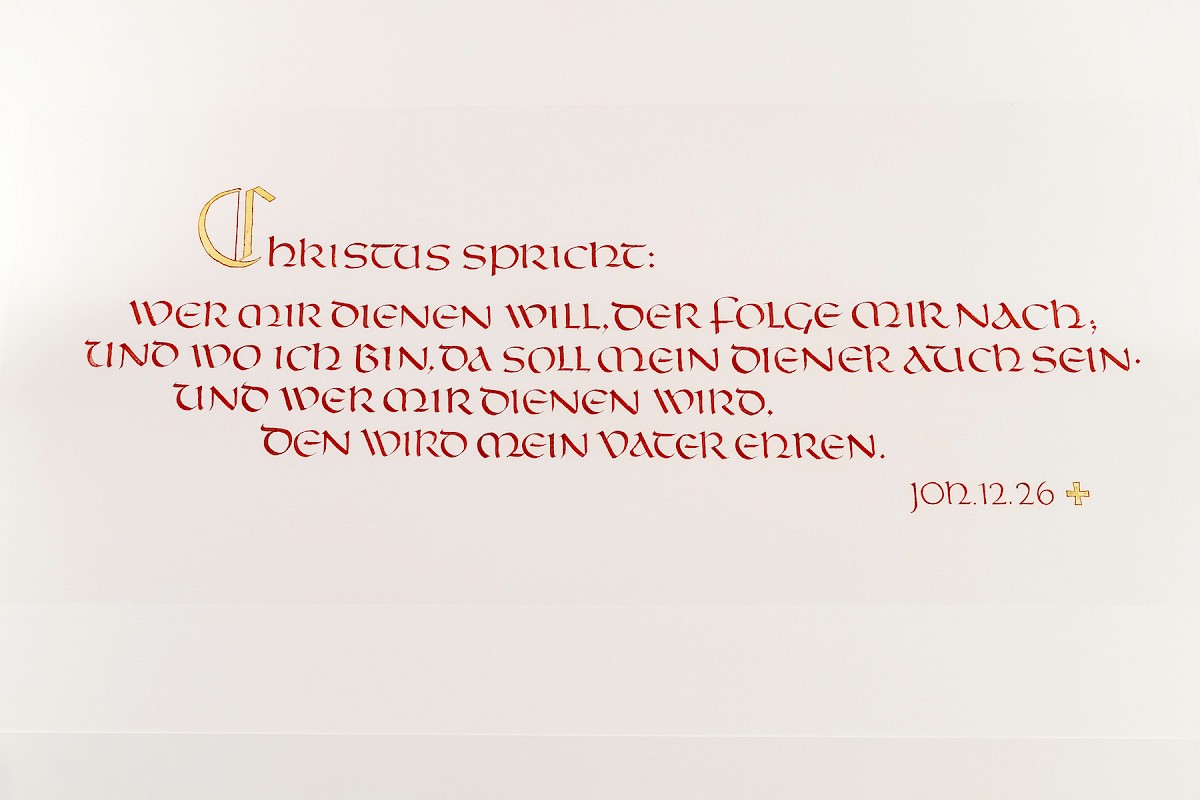 Christus spricht:
Wer mir dienen will, der folge mir nach;
und wo ich bin, da soll mein Diener auch sein.
Und wer mir dienen wird,
den wird mein Vater ehren.
Joh. 12. 26